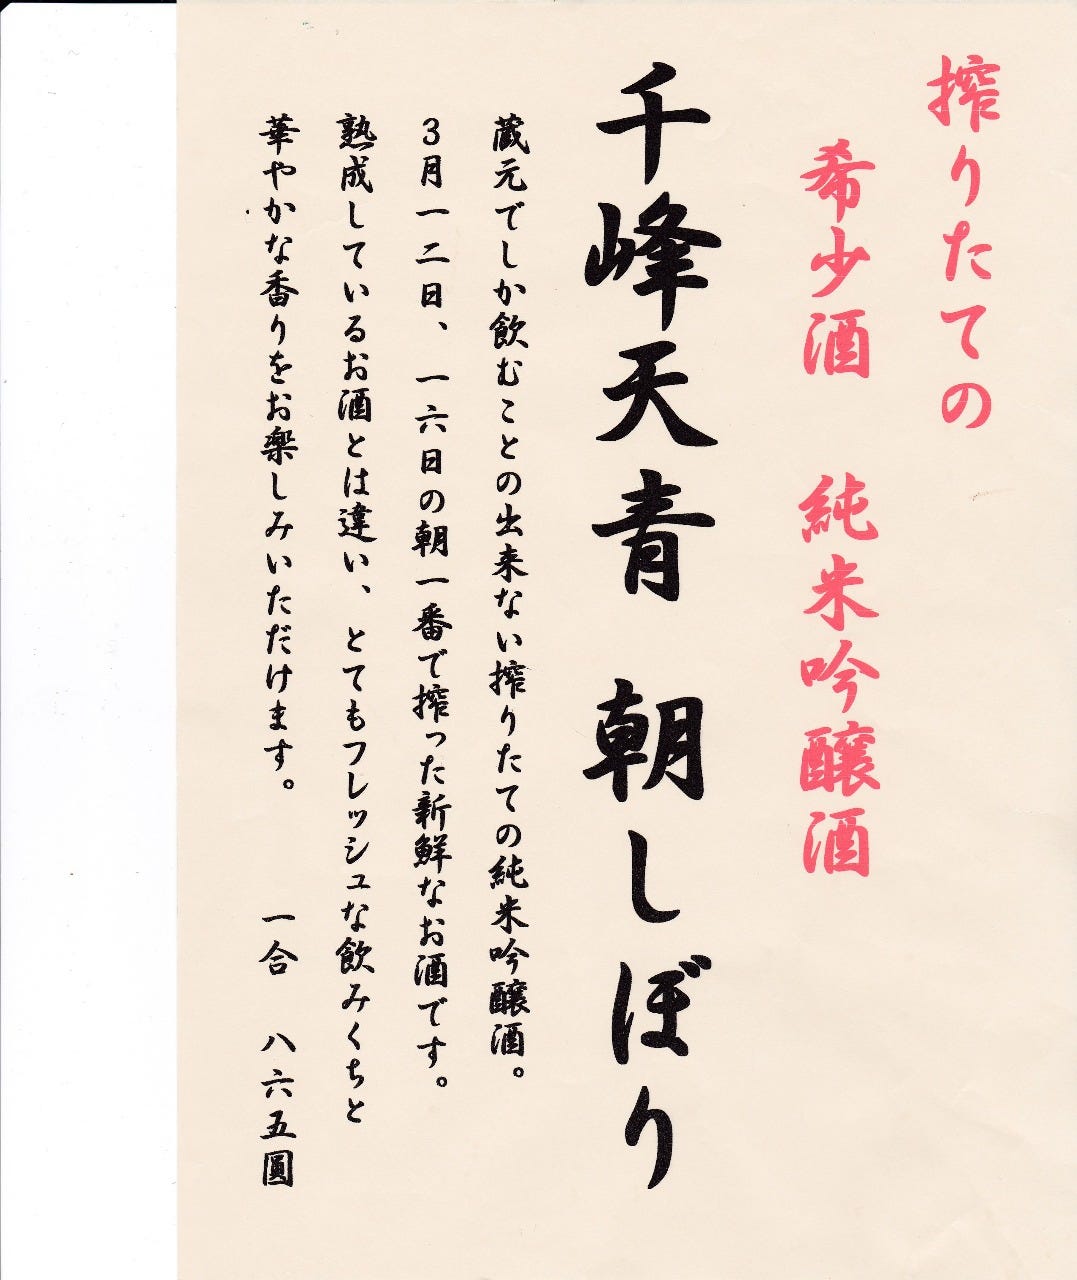 搾りたての
希少酒　純米吟醸酒
千峰天青　朝しぼり
蔵元でしか飲むことの出来ない搾りたての純米吟醸酒。
3月一二日、一六日の朝一番で搾った新鮮なお酒です。
熟成しているお酒とは違い、とてもフレッシュな飲みくちと
華やかな香りをお楽しみいただけます。　一合　八六五圓